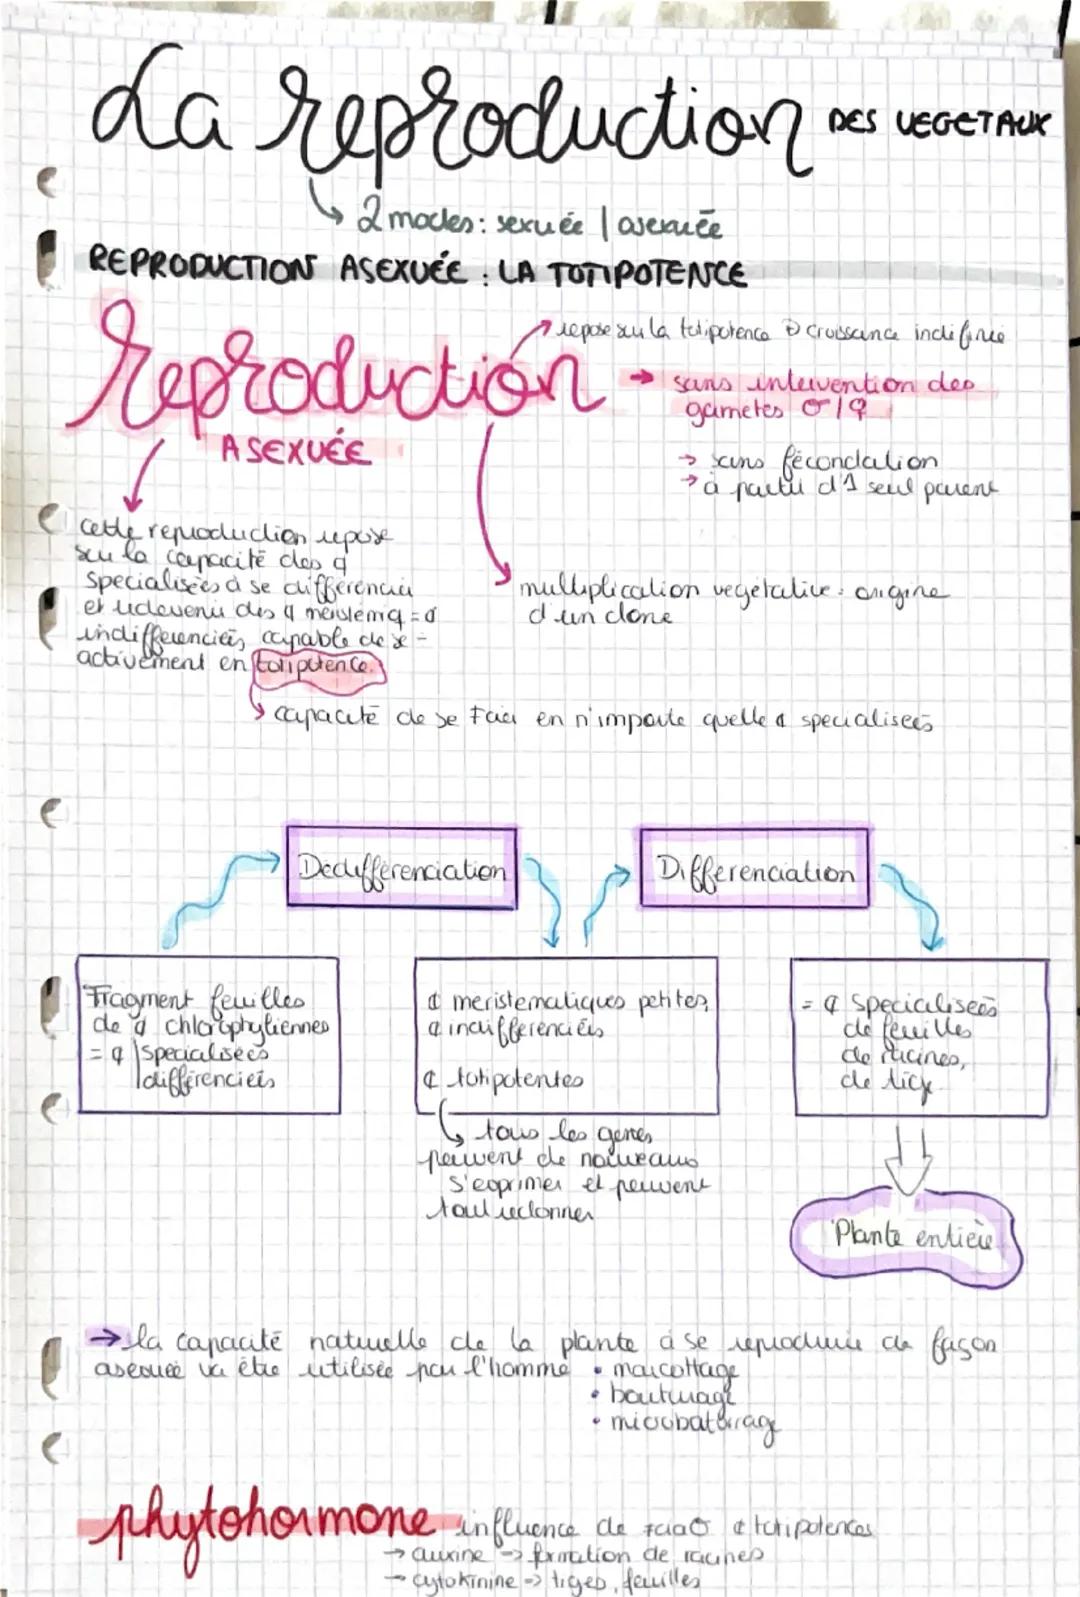 La reproduction DES VEGETAUX
↳ 2 modes: sexuée / asexuée
REPRODUCTION ASEXUÉE : LA TOTIPOTENCE
reproduction
ASEXUÉE
repose sur la totipotence croissance indifinie
→ sans intervention des
gametes ♂/♀
→ sans fécondation
→ à partir d'1 seul parent
cette reproduction repose
sur la capacité des ¢
specialisées à se différencier
et redevenir des ¢ meristemq = ¢
indifférenciées, capable de se
activement en totipotence.
multiplication vegétative: origine
d'un clone
↳ capacité de se en n'importe quelle ¢ specialisées
Dedifférenciation
Différenciation
Fragment feuilles
de ¢ chlorophyliennes
= ¢ specialisées
différenciées
¢ meristematiques petites,
¢ indifférenciées
¢ totipotentes
↳ tous les genes
peuvent de nouveaus
s'exprimer et peuvent
tout redonner
= ¢ specialisées
de feuilles
de racines,
de tige
Plante entière
→ la capacité naturelle de la plante à se reproduire de façon
asexuée va être utilisée par l'homme
• marcottage
• bouturage
phytohormone influence de ¢ totipotences
→ auxine → formation de racines
→ cytokinine → tiges, feuilles